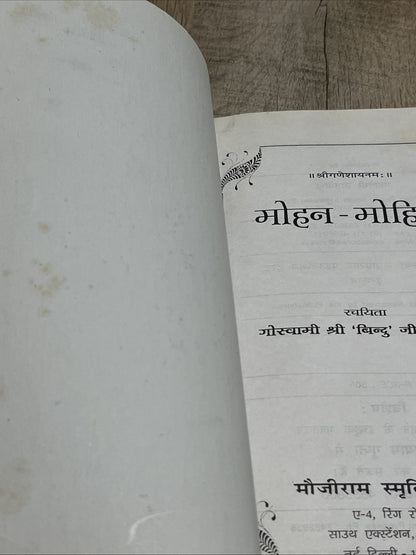 ॥श्रीगणेशायनमः॥
मोहन - मोहि
रचयिता
गोस्वामी श्री 'बिन्दु' जी
मौजीराम स्मृ
ए-4, रिंग रो
साउथ एक्स्टेंशन,
नई दिल्ली